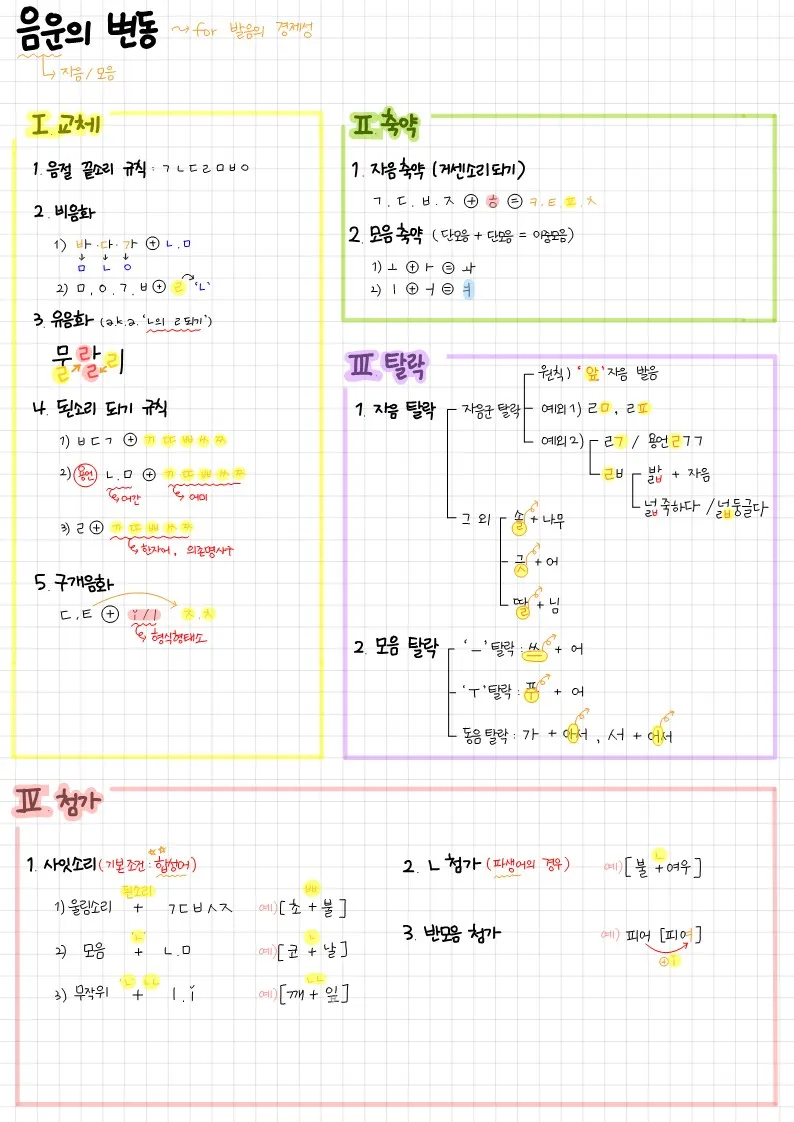 음운의 변동 ~> for 발음의 경제성
↳ 자음/모음
Ⅰ. 교체
1. 음절 끝소리 규칙 : ㄱㄴㄷㄹㅁㅂㅇ
2. 비음화
1) 바·다·가 ⊕ ㄴ.ㅁ
↓ ↓ ↓
ㅁ ㄴ ㅇ
2) ㅁ, ㅇ, ㄱ, ㅂ ⊕ ㄹ 'ㄴ'
3. 유음화 (a.k.a. 'ㄴ의 ㄹ되기')
무 라 리
ㄹ ㄹ
4. 된소리 되기 규칙
1) ㅂㄷㄱ ⊕ ㄲ ㄸ ㅃ ㅆ ㅉ
2) 용언 ㄴ.ㅁ ⊕ ㄲ ㄸ ㅃ ㅆ ㅉ
↳ 어간 ↳ 어미
3) ㄹ ⊕ ㄲ ㄸ ㅃ ㅆ ㅉ
↳ 한자어, 의존명사구
5. 구개음화
ㄷ, ㅌ ⊕ ǐ/ㅣ ㅈ.ㅊ
↳ 형식형태소
Ⅱ 축약
1. 자음축약 (거센소리되기)
ㄱ.ㄷ.ㅂ.ㅈ ⊕ ㅎ ⊜ ㅋ.ㅌ.ㅍ.ㅊ
2. 모음축약 (단모음 + 단모음 = 이중모음)
1) ㅗ ⊕ ㅏ ⊜ ㅘ
2) ㅣ ⊕ ㅓ ⊜ ㅕ
Ⅲ 탈락
1. 자음 탈락
자음군 탈락
원칙) '앞'자음 발음
예외1) ㄹㅁ, ㄹㅍ
예외2) ㄹㄱ / 용언ㄹㄱㄱ
ㄹㅂ 밟 + 자음
넓죽하다 / 넓둥글다
그 외 솔 + 나무
긋 + 어
딸 + 님
2. 모음 탈락
'ㅡ' 탈락 : 쓰 + 어
'ㅜ' 탈락 : 푸 + 어
동음 탈락 : 가 + 아서, 서 + 어서
Ⅳ. 첨가
1. 사잇소리 (기본조건 : 합성어)
된소리 ㅃ
1) 울림소리 + ㄱㄷㅂㅅㅈ 예) [초 + 불]
'ㄴ' ㄴ
2) 모음 + ㄴ.ㅁ 예) [코 + 날]
'ㄴ' ㄴㄴ ㄴㄴ
3) 무작위 + ㅣ.ǐ 예) [깨 + 잎]
2. ㄴ 첨가 (파생어의 경우) 예) [불 + 여우]
ㄴ
3. 반모음 첨가 예) 피어 [피여]
⊕ǐ